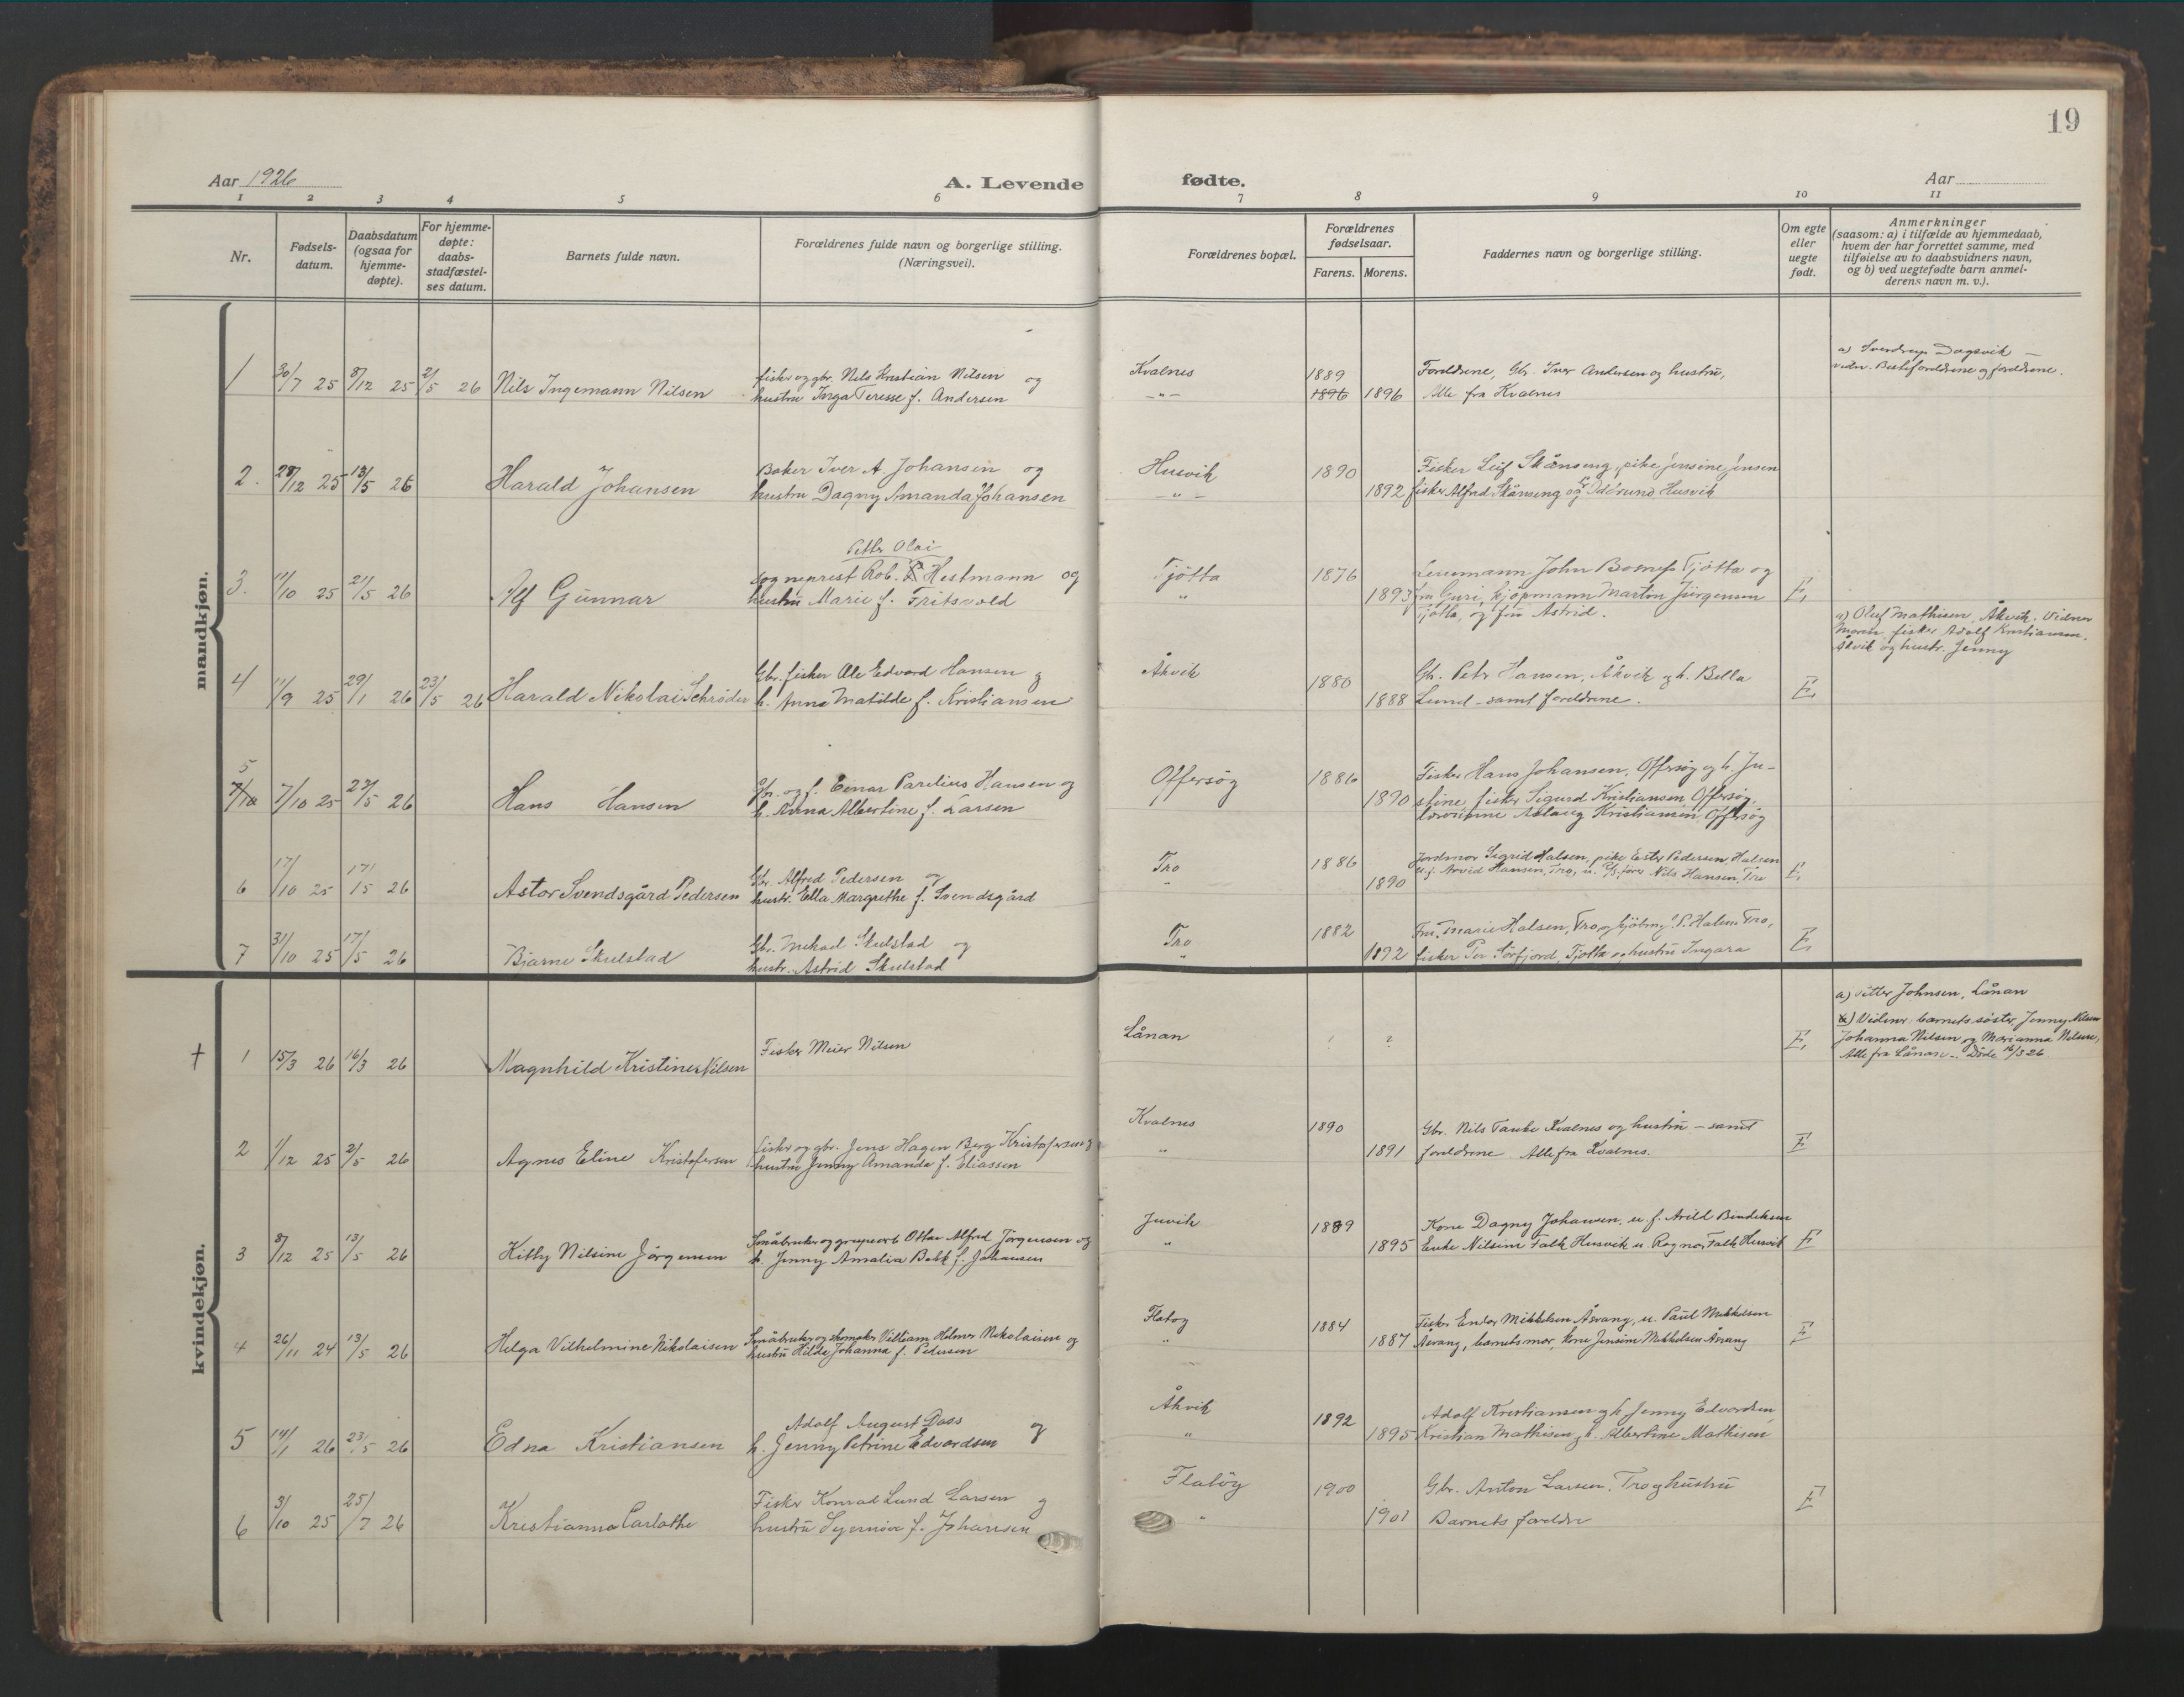 19
Aar 1926
A. Levende
fødte.
Aar
1 2 3 4 5 6 7 8 9 10 11
Nr.
Fødsels-
datum.
Daabsdatum
(ogsaa for
hjemme-
døpte).
For hjemme-
døpte:
daabs-
stadfæstel-
ses datum.
Barnets fulde navn.
Forældrenes fulde navn og borgerlige stilling.
(Næringsvei).
Forældrenes bopæl.
Forældrenes
fødselsaar.
Farens. Morens.
Faddernes navn og borgerlige stilling.
Om egte
eller
uegte
født.
Anmerkninger
(saasom: a) i tilfælde av hjemmedaab,
hvem der har forrettet samme, med
tilføielse av to daabsvidners navn,
og b) ved uegtefødte barn anmel-
derens navn m. v.).
mandkjøn.
1 30/7 25 8/12 25 2/5 26 Nils Ingemann Nilsen
fisker og gbr. Nils Kristian Nilsen og
hustru Inga Teresse f. Andersen
Kvalnes
-"-
1889
1896 1896
Foreldrene, Gbr. Iver Andersen og hustru,
Alle fra Kvalnes
a) Sverdrup Dagsvik –
vidn. Besteforeldrene og foreldrene.
2. 28/12 25 13/5 26 Harald Johansen
Baker Iver A. Johansen og
hustru Dagny Amanda Johansen
Husvik
-"-
1890
1892
Fisker Leif Skånseng, pike Jensine Jensen
fisker Alfred Skånseng og fr Oddrund Husvik
3. 11/10 25 21/5 26 Alf Gunnar
Petter Olai
sogneprest Rob. Hestmann og
hustru Marie f. Fritsvold
Tjøtta
"
1876
1893
Lensmann John Tjøtta og
fru Guri, kjøpmann Marton Jürgensen
Tjøtta, og fru Astrid.
E.
4 11/9 25 29/1 26 23/5 26 Harald Nikolai Schrøder
Gbr. fisker Ole Edvard Hansen og
h. Anna Matilde f. Kristiansen
Åkvik
1880
1888
Gb. Petr Hansen, Åkvik og h. Bella
Lund – samt foreldrene.
E.
a) Oluf Mathisen, Åkvik. Vidner
Moren, fisker Adolf Kristiansen,
Åkvik og hustr. Jenny
5
7/10 7/10 25 23/5 26 Hans Hansen
Gbr. og f. Einar Parelius Hansen og
h. Anna Albertine f. Larsen
Offersøy
1886
1890
Fisker Hans Johansen, Offersøy og h. Ju-
stine, fisker Sigurd Kristiansen, Offersøy,
lærerinne Aslaug Kristiansen, Offersøy
6 17/10 25 17/5 26 Astor Svendsgård Pedersen
Gbr. Alfred Pedersen og
hustr. Ella Margrethe f. Svendsgård
Tro
"
1886
1890
Jordmor Sigrid Halsen, pike Ester Pedersen, Halsen
u.f. Arvid Hansen, Tro, u. Nils Hansen, Tro
E.
7 31/10 25 17/5 26 Bjarne Skulstad
Gbr. Mikael Skulstad og
hustr. Astrid Skulstad
Tro
"
1882
1892
Fru Marie Halsen, Tro og kjøbm. P. Halsen Tro,
fisker Per Sørfjord, Tjøtta og hustru Ingara
E.
kvindekjøn.
† 1 15/3 26 16/3 26 Magnhild Kristine Nilsen
Fisker Meier Nilsen
Lånan
?
E.
a) Petter Johnsen, Lånan
Vidner barnets søster, Jenny Nilsen
Johanna Nilsen og Marianna Nilsen,
Alle fra Lånan –. Døde 16/3 26
2 1/12 25 2/5 26 Agnes Eline Kristofersen
fisker og gbr. Jens Hagen Berg Kristofersen og
hustru Jenny Amanda f. Eliassen
Kvalnes
"
1890
1891
Gbr. Nils Kvalnes og hustru – samt
foreldrene Alle fra Kvalnes.
E
3 8/12 25 13/5 26 Kitty Nilsine Jørgensen
Småbruker og Ottar Alfred Jørgensen og
h. Jenny Amalia f. Johansen
Juvik
"
1889
1895
Kone Dagny Johansen, u. f. Arild Bendiksen
Enke Nilsine Falk Husvik u. Ragnar Falk Husvik
E
4 26/11 24 13/5 26 Helga Vilhelmine Nikolaisen
Småbruker og skomaker Villiam Holmer Nikolaisen og
hustru Hilda Johanna f. Pedersen
Flatøy
"
1884
1887
Fisker Endor Mikkelsen Åsvang, u. Paul Mikkelsen
Åsvang, barnets mor, kone Jensine Mikkelsen Åsvang
E
5 14/1 26 23/5 26 Edna Kristiansen
Adolf August Dass og
h. Jenny Petrine Edvardsen
Åkvik
"
1892
1895
Adolf Kristiansen og h. Jenny Edvardsen,
Kristian Mathisen og h. Albertine Mathisen
6 3/10 25 25/7 26 Kristianna Carlothe
Fisker Konrad Lund Larsen og
hustru Synnøve f. Johansen
Flatøy
"
1900
1901
Gbr. Anton Larsen, Tro og hustru
Barnets foreldre
E